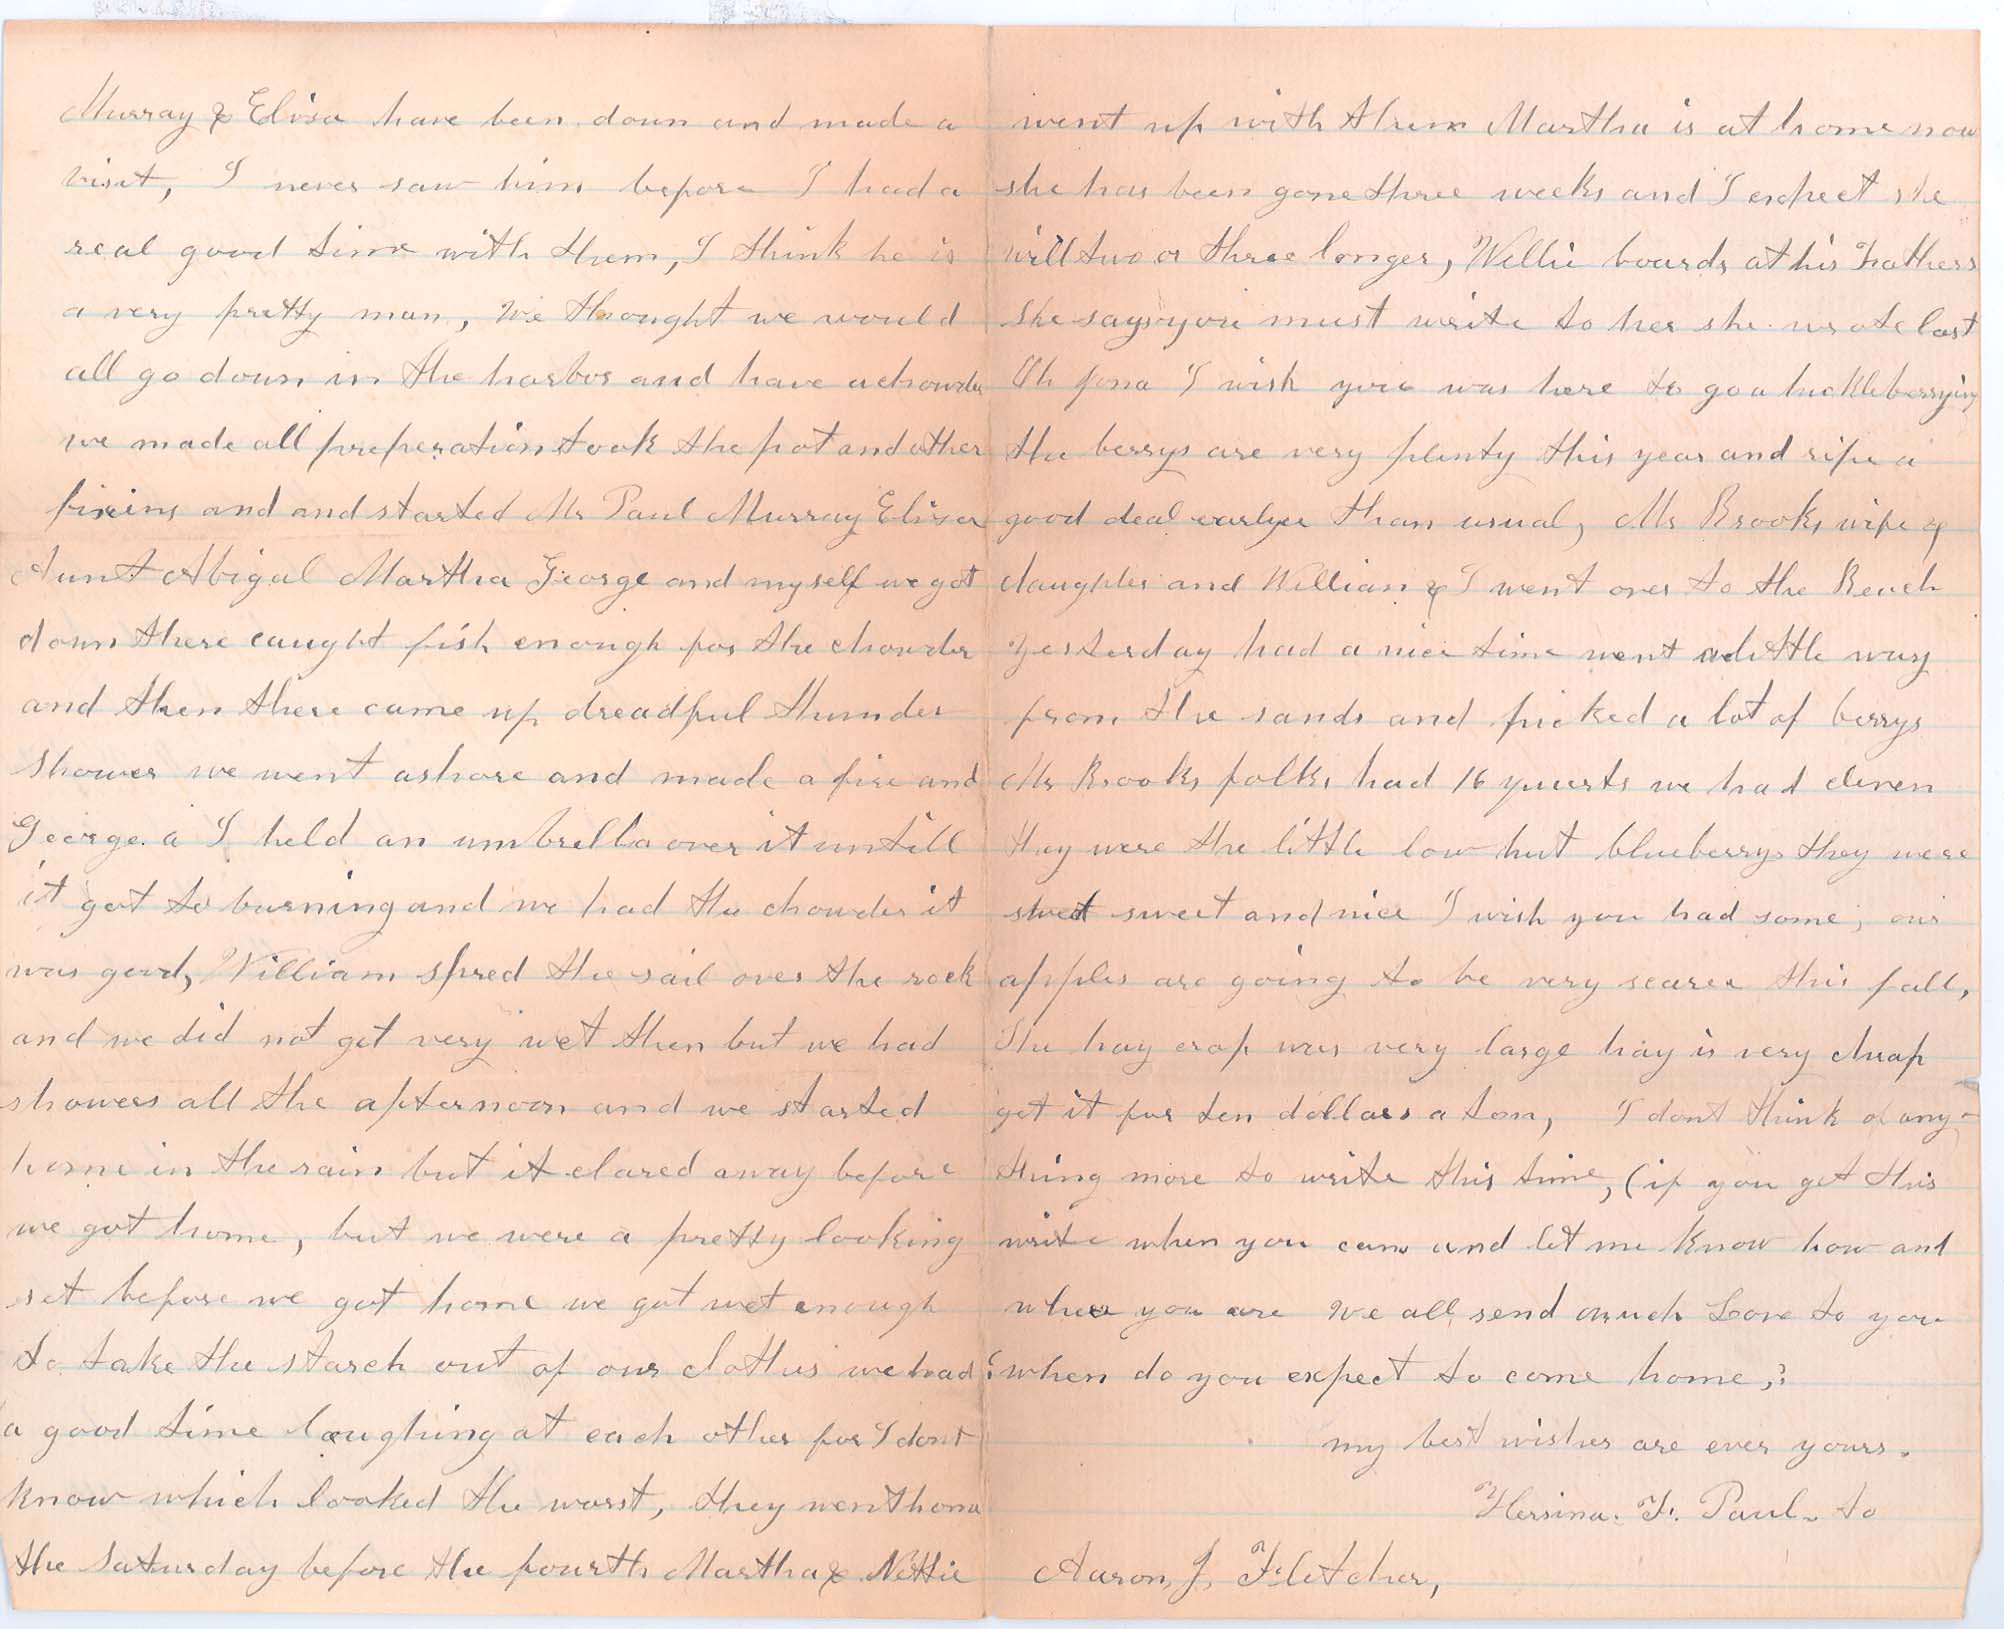 Murray & Elisa have been down and made a
visit, I never saw him before I had a
real good time with them, I think he is
a very pretty man, We thought we would
all go down in the harbor and have a chowder
we made all preperation took the pot and other
fixins and and started Mr Paul Murray Elisa
Aunt Abigal Martha George and myself we got
down there caught fish enough for the chowder
and then there came up dreadful thunder
shower we went ashore and made a fire and
George. a I held an umbrella over it untill
it got to burning and we had the chowder it
was good, William spred the sail over the rock
and we did not get very wet then but we had
showers all the afternoon and we started
home in the rain but it clared away before
we got home, but we were a pretty looking
set before we got home we got wet enough
to take the starch out of our clothes we had
a good time laughing at each other for I dont
know which looked the worst, they went home
the Saturday before the fourth Martha & Nettie
went up with them Martha is at home now
she has been gone three weeks and I expect she
will two or three longer, Willie boards at his Fathers
She says you must write to her she wrote last
Oh I wish you was here to go a huckleberrying
the berrys are very plenty this year and ripe a
good deal earlyer than usual, Mr Brooks wife &
daughter and William & I went over to the Beach
yesterday had a nice time went a little way
from the sands and picked a lot of berrys
Mr Brooks folks had 16 quarts we had eleven
they were the little low but blueberrys they were
sweet sweet and nice I wish you had some, our
apples are going to be very scarce this fall,
The hay crop was very large hay is very cheap
get it for ten dollars a ton, I dont think of any-
thing more to write this time, (if you get this
write when you can and let me know how and
where you are We all send much Love to you
when do you expect to come home,?
my best wishes are ever yours.
Hersina. F. Paul. to
Aaron, J, Fletcher,